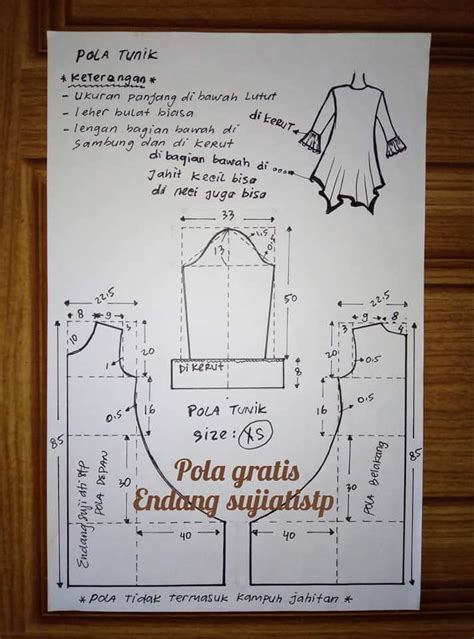 POLA TUNIK
* Keterangan *
- Ukuran panjang di bawah Lutut
- leher bulat biasa
- lengan bagian bawah di
sambung dan di kerut
di bagian bawah di....
jahit kecil bisa
di neci juga bisa
di KERUT
33
1,5
0,5
13
50
Di KERUT
8
POLA TUNIK
size: XS
22,5
8 9 3
10
1
20
0,5
16
85
30
40
Endang Sujiati stp
POLA DEPAN
22,5
3 9 8
4
20
0,5
0,5
16
85
30
40
POLA Belakang
Pola gratis
Endang sujiatistp
* POLA TIDAK TERMASUK KAMPUH JAHITAN *